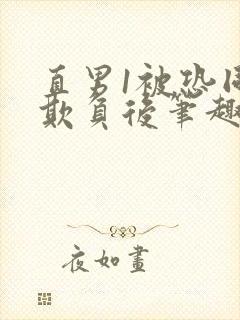 直男1被恐同
欺負後筆趣
夜如畫